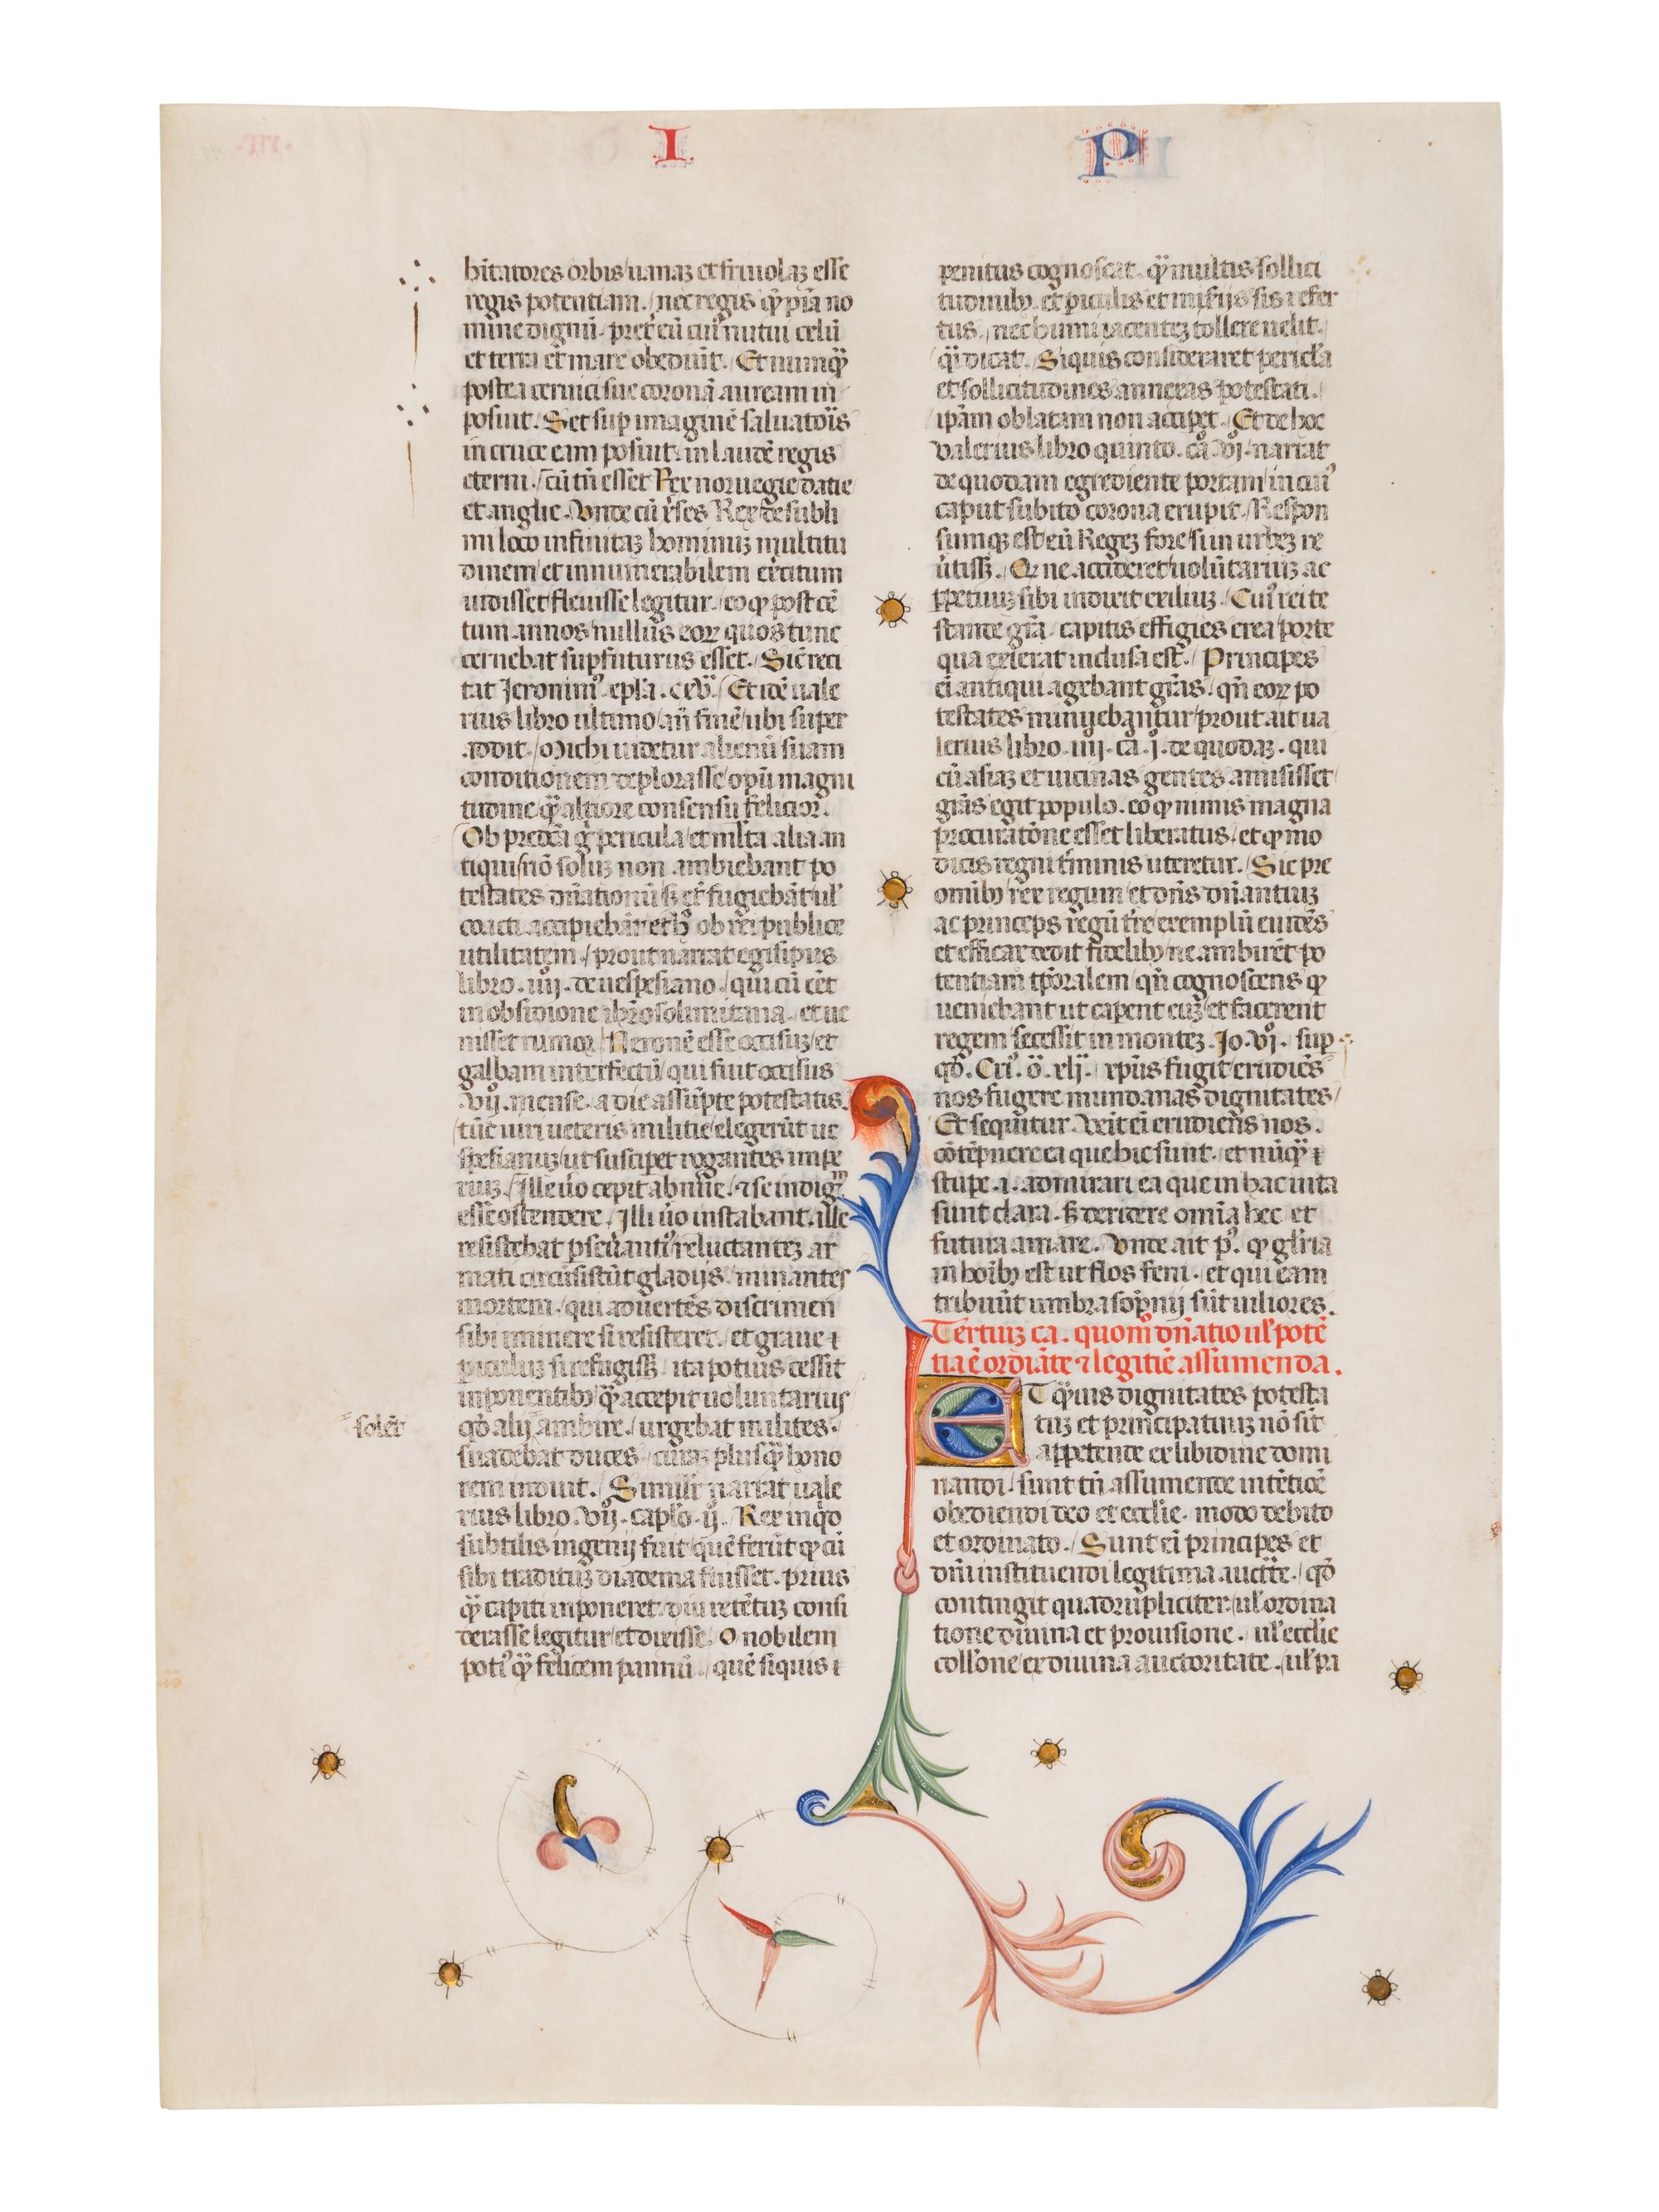 I P
bitatores orbis uanaz et friuolaz esse
regis potentiam. nec regis qͥ pͥa no
mine dignũ. pret̃ eũ cuiꝰ nutui celũ
et terra et mare obediũt. Et nunqͣ
postea ceruici sue coronã auream in
posuit. Set sup imaginẽ saluatoĩs
in cruce eam posuit. in laudẽ regis
eterni. cũ tñ esset Rex noruegie datie
et anglie. Vnde cũ xͥses Rex de subli
mi loco infinitaz hominuz multitu
dinem et innumerabilem exͥcitum
uidisset fleuisse legitur. eo qͥ post cẽ
tum annos nullus eoꝝ quos tunc
cernebat supfuturus esset. Sic reci
tat Jeronimꝰ epla. cxv. Et idẽ uale
rius libro ultimo añ finẽ ubi super
addit. Michi uidetur alienũ suam
conditionem deplorasse opũ magni
tudine qͣ altiore consensũ felicior.
Ob predcã gͥ pericula et mlta alia an
tiqui nõ soluz non ambiebant po
testates dñationũ sꝫ et fugiebãt ul
coacti accipiebãt et hͦ ob rei publice
utilitatem. prout narrat egisipus
libro. iiij. de uespesiano. qui cũ eẽt
in obsidione ihrosolimitana. et ue
nisset rumor Neronẽ esse occisuz et
galbam interfectũ qui fuit occisus
.vij. mense. a die assũpte potestatis.
tũc uiri ueteris militie elegerũt ue
spesianuz ut susciꝑet rogantes impe
riuz. Ille ũo cepit abnuẽ. ⁊ se indigͫ
esse ostendere. Illi ũo instabant. ille
resistebat pseũantiꝰ reluctantez ar
mati circũsistũt gladijs. minantes
mortem. qui aduertẽs discrimen
sibi iminere si resisteret. et graue ⁊
piculuz si refugissꝫ ita potius cessit
inponentibꝫ qͣ accepit uoluntarius
qͦd alij ambire. urgebat milites.
solẽt
suadebat duces. curaz plusqͣ hono
rem induit. Similiẽ narrat uale
rius libro. vij. caplo. ij. Rex inqͥd
subtilis ingenij fuit quẽ ferũt qͥ cũ
sibi traditũz diadema fuisset. prius
qͣ capiti inponeret diu retẽtuz consi
derasse legitur et dixisse. O nobilem
potiꝰ qͣ felicem pannũ. quẽ siquis ⁊
penitus cognoscat. qͣ multis sollici
tudinibꝫ. et piculis et misijs sis refer
tus. nec humi iacentez tollere uelit.
qͥ dicat. Siquis consideraret pericla
et sollicitudines annexas potestati.
ipãm oblatam non acciꝑet. Et de hoc
valerius libro quinto. cã. vj. narrat
de quodam egrediente portam in cuiꝰ
caput subito corona erupit. Respon
sumqꝫ est eũ Regez fore si in urbez re
ũtissꝫ. Qͥ ne accideret uolũtariuz ac
ꝑpetuuz sibi indixit exiliuz. Cuiꝰ rei te
stante grã capitis effigies erea porte
qua exierat inclusa est. Principes
eĩ antiqui agebant grãs. qñ eoꝝ po
testates minuebantur prout ait ua
lerius libro. iiij. cã. j. de quodaz. qui
cũ asiaz et uicinas gentes amisisset
grãs egit populo. eo qͥ nimis magna
procuratõne esset liberatus. et qͥ mo
dicis regni t̃minis uteretur. Sic pre
omibꝫ rex regum et dñs dñantiuz
ac princeps regũ tr̃e exemplũ euidẽs
et efficax dedit fidelibꝫ ne ambirẽt po
tentiam tp̃oralem qñ cognoscens qͥ
ueniebant ut caꝑent euz et facerent
regem secessit in montez. Jo. vj. sup
qͦ. Criꝰ. õ. xlij. xpũs fugit erudiẽs
nos fugere mundanas dignitates
Et sequĩtur. Veit eĩ erudiens nos.
cõtẽpnere ea que hic sunt. et nũqͣ ⁊
stupe. i. admirari ea que in hac uita
sunt clara. sꝫ deridere omia hec et
futura amare. Vnde ait pͥ. qͥ glria
in hoibꝫ est ut flos feni. et qui eam
tribuũt umbra sop̃nij sũt uiliores.
Tertiuz ca. quomõ dñatio ul potẽ
tia ẽ ordiãte ⁊ legitiẽ assumenda.
ET qͣuis dignitates potesta
tuz et principatiuz nõ sit
appetende ex libidine domi
nandi sunt tñ assumende intẽtiõe
obediendi deo et ecclie. modo debito
et ordinato. Sunt eĩ principes et
dñi instituendi legitima auctãte. qͦd
contingit quadrupliciter ul ordina
tione diuina et prouisione. ul ecclie
collone ex diuina auctoritate. ul pa